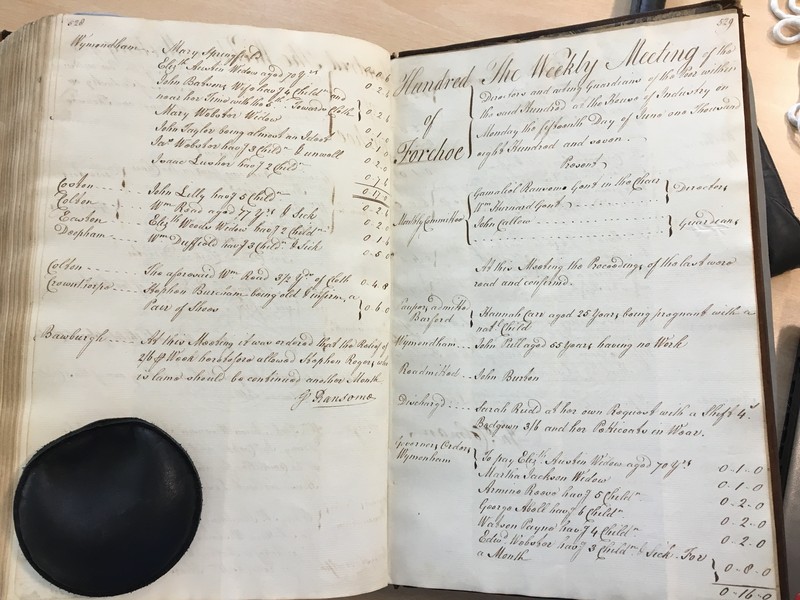 528
Wymondham
Mary Springfield
Eliz.th Austin Widow aged 70 Y.rs
0-2
John Barbers Wife hav.g 4 Child.n and
near her Time with Towards Cloth.g
0-2
Mary Webster Widow
0-1
John Taylor being almost an Ideot
Ja.s Webster hav.g 3 Child.n & unwell
Isaac Lusher hav.g 2 Child.n
Coston John Lilly hav.g 5 Child.n
Colton W.m Read aged 77 Y.rs & Sick
0-2
Easton Eliz.th Woods Widow hav.g 2 Child.n
Deepham W.m Duffield hav.g 3 Child.n & Sick
0-5-0
Colton The aforesaid W.m Read 3 1/2 Y.ds of Cloth
0-4-8
Crownthorpe Stephen Burcham being old & infirm, a
Pair of Shoes
0-6-0
Bawburgh At this Meeting it was ordered that the Relief of
2/6 ⅌ Week heretofore allowed Stephen Roger, who
is lame should be continued another Month
G. Ransome
529
Hundred
of
Forehoe
The Weekly Meeting of the
Directors and acting Guardians of the Poor within
the said Hundred at the House of Industry on
Monday the fifteenth Day of June one Thousand
eight Hundred and seven
Present
Monthly Committee
Gamaliel Ransome Gent in the Chair
W.m Turnard Gent
Directors
John Callow
Guardians
At this Meeting the Proceedings of the last were
read and confirmed.
Paupers admitted
Barford
Hannah Carr aged 25 Years being pregnant with a
nat.l Child
Wymondham John Pitt aged 55 Years having no Work
Readmitted John Burton
Discharg'd Sarah Rudd at her own Request with a Shift 4.s
Bedgown 3/6 and her Petticoats in Wear.
Governors Orders
Wymonham
To pay Eliz.th Austin Widow aged 70 Y.rs
0-1-0
Martha Jackson Widow
0-1-0
Armine Reeve hav.g 5 Child.n
0-2-0
George Abell hav.g 6 Child.n
0-2-0
Watson Payne hav.g 4 Child.n
0-2-0
Edw.d Webster hav.g 3 Child.n & Sick For
a Month
0-8-0
0-16-0